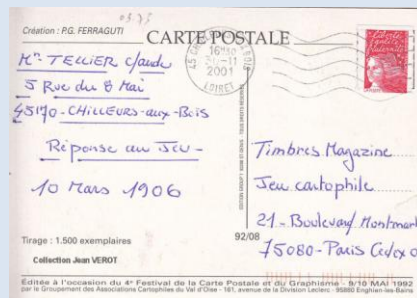 03.75
Création : P.G. FERRAGUTI
CARTE POSTALE
45 CH
BOIS
16H
11
2001
LOIRET
Mr TELLIER Claude
5 Rue du 8 Mai
45170-CHILLEURS-aux-Bois
Réponse au Jeu-
10 Mars 1906
Timbres Magazine
Jeu cartophile
21-Boulevard Montmart
75080-Paris Cedex 0
Tirage : 1.500 exemplaires
92/08
Collection Jean VEROT
Éditée à l'occasion du 4e Festival de la Carte Postale et du Graphisme - 9/10 MAI 1992
par le Groupement des Associations Cartophiles du Val d'Oise - 161, avenue de la Division Leclerc - 95880 Enghien-les-Bains